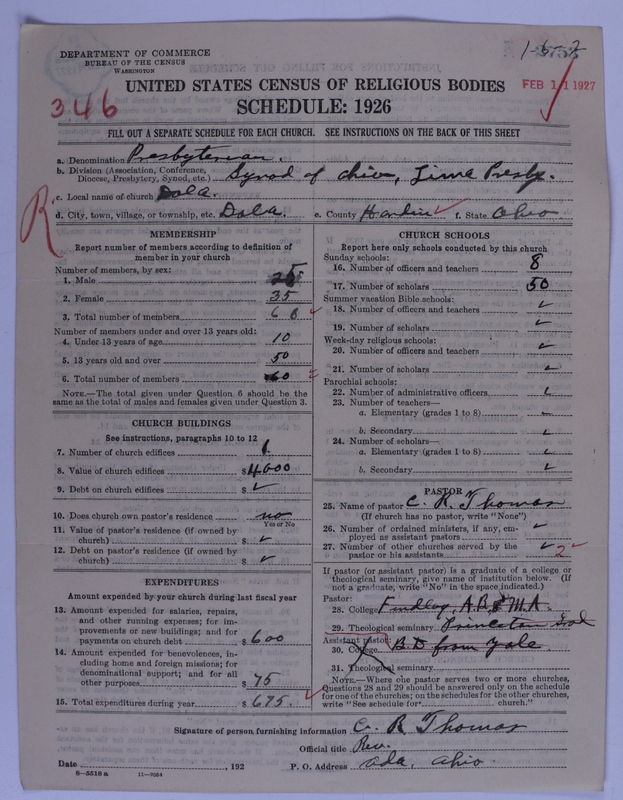 DEPARTMENT OF COMMERCE
BUREAU OF THE CENSUS
WASHINGTON
1-6-2
UNITED STATES CENSUS OF RELIGIOUS BODIES
FEB 11 1927
346
SCHEDULE: 1926
FILL OUT A SEPARATE SCHEDULE FOR EACH CHURCH. SEE INSTRUCTIONS ON THE BACK OF THIS SHEET
a. Denomination Presbyterian.
b. Division (Association, Conference, Diocese, Presbytery, Synod, etc.) Synod of Ohio, Lima Presby.
c. Local name of church Dola.
d. City, town, village, or township, etc. Dola. e. County Hardin f. State Ohio
R
MEMBERSHIP
Report number of members according to definition of member in your church
Number of members, by sex:
1. Male 25
2. Female 35
3. Total number of members 60
Number of members under and over 13 years old:
4. Under 13 years of age 10
5. 13 years old and over 50
6. Total number of members 60
NOTE.—The total given under Question 6 should be the same as the total of males and females given under Question 3.
CHURCH BUILDINGS
See instructions, paragraphs 10 to 12
7. Number of church edifices 1
8. Value of church edifices $4000
9. Debt on church edifices $
10. Does church own pastor's residence no
Yes or No
11. Value of pastor's residence (if owned by church) $
12. Debt on pastor's residence (if owned by church) $
EXPENDITURES
Amount expended by your church during last fiscal year
13. Amount expended for salaries, repairs, and other running expenses; for improvements or new buildings; and for payments on church debt $600
14. Amount expended for benevolences, including home and foreign missions; for denominational support; and for all other purposes $75
15. Total expenditures during year $675.
CHURCH SCHOOLS
Report here only schools conducted by this church
Sunday schools:
16. Number of officers and teachers 8
17. Number of scholars 50
Summer vacation Bible schools:
18. Number of officers and teachers
19. Number of scholars
Week-day religious schools:
20. Number of officers and teachers
21. Number of scholars
Parochial schools:
22. Number of administrative officers
23. Number of teachers—
a. Elementary (grades 1 to 8)
b. Secondary
24. Number of scholars—
a. Elementary (grades 1 to 8)
b. Secondary
PASTOR
25. Name of pastor C. R. Thomas
(If church has no pastor, write "None")
26. Number of ordained ministers, if any, employed as assistant pastors
27. Number of other churches served by the pastor or his assistants 2
If pastor (or assistant pastor) is a graduate of a college or theological seminary, give name of institution below. (If not a graduate, write "No" in the space indicated.)
Pastor:
28. College Findlay, A.B. & M.A.
29. Theological seminary Princeton
Assistant pastor:
30. College B.D from Yale
31. Theological seminary
NOTE.—Where one pastor serves two or more churches, Questions 28 and 29 should be answered only on the schedule for one of the churches; on the schedules for the other churches, write "See schedule for church."
Signature of person furnishing information C. R Thomas
Official title Rev.
Date , 192 P. O. Address Ada, Ohio.
8—5518 a 11—9054